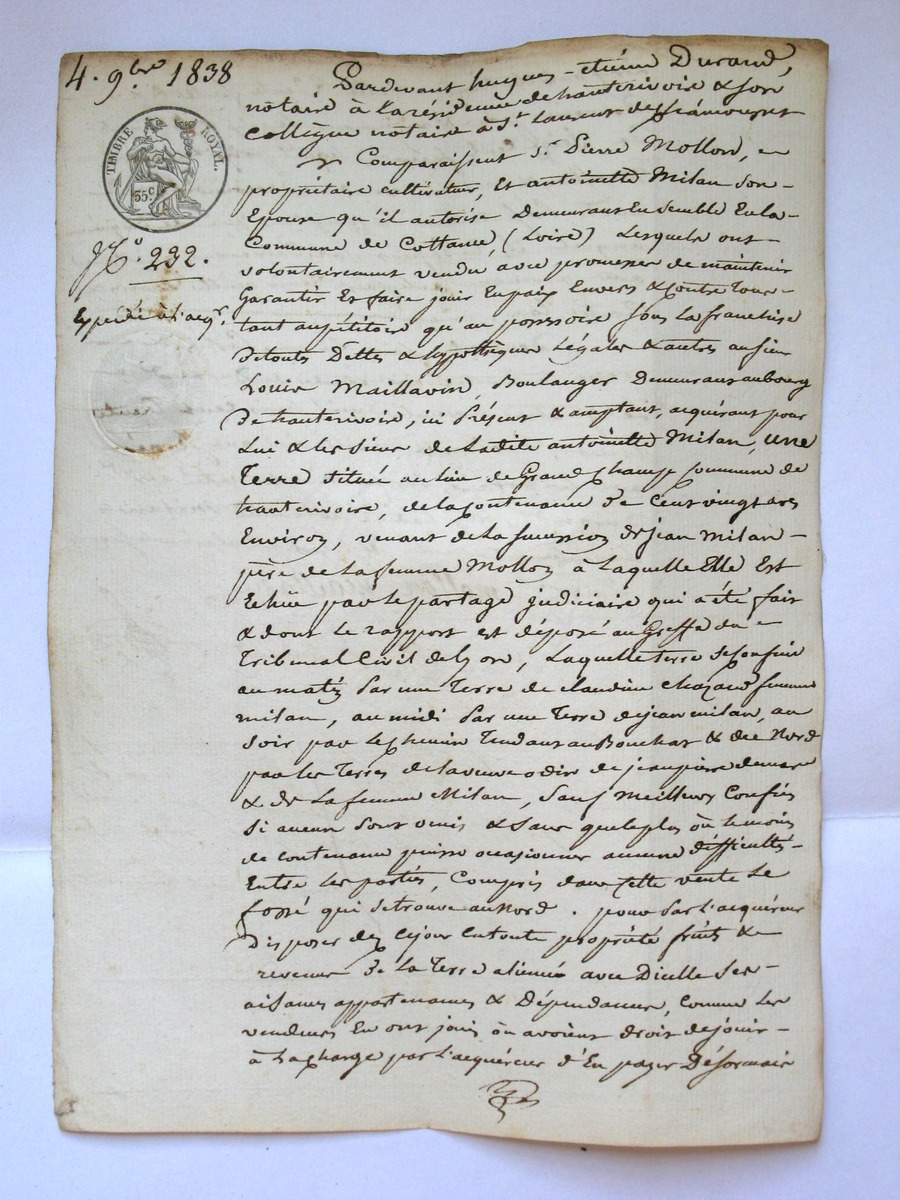 4. 9bre 1838
TIMBRE ROYAL.
35 c.
N.o 232.
Expédié à l'acqr.
Pardevant hugues-etiéne Durand,
notaire à la résidence de hauterivoire & son
collègue notaire à St. Laurent de chamousset
Comparaissent Sr. Pierre Mollon,
propriétaire cultivateur, Et antoinette Milan son
Epouse qu'il autorise Demeurant Ensemble En la
Commune de Cottance, (Loire) Lesquels ont
volontairement vendu avec promesse de maintenir
Garantir Et faire jouir En paix Envers & contre tous
tant au pétitoire qu'au possessoire sous la franchise
de toutes Dettes & hypothèques Légales & autres au sieur
Louis Maillavin, Boulanger Demeurant au bourg
de hauterivoire, ici Présent & acceptant, acquérant pour
Lui & les siens de Ladite antoinette Milan, une
Terre située au lieu de Grand champ commune de
hauterivoire, de la contenance de Cent vingt ares
Environ, venant de la succession de jean Milan
père de la femme Mollon à Laquelle Elle Est
Echüe par le partage judiciaire qui a été fait
& dont le rapport est déposé au Greffe du
Tribunal Civil de Lyon, Laquelle terre se confine
au matin Par une Terre de claudine chazaud femme
milan, au midi Par une Terre de jean milan, au
soir par le chemin Tendant au Bouchat & du Nord
par les Terres de la veuve odin de jean pierre
& de La femme Milan, Sauf Meilleurs Confins
Si aucun sont omis & sans que le plus ou le moins
de contenance puisse occasionner aucune difficultés
Entre Les parties, Compris dans cette vente Le
fossé qui se trouve au Nord. pour Par l'acquéreur
Disposer dez ce jour En toute propriété fruits &
revenus de La Terre aliénée avec D'icelle Ses
aisances appartenances & Dépendances, Comme Les
vendeurs En ont joui ou avoient droit de jouir
à La charge par l'acquéreur d'En payer Désormais